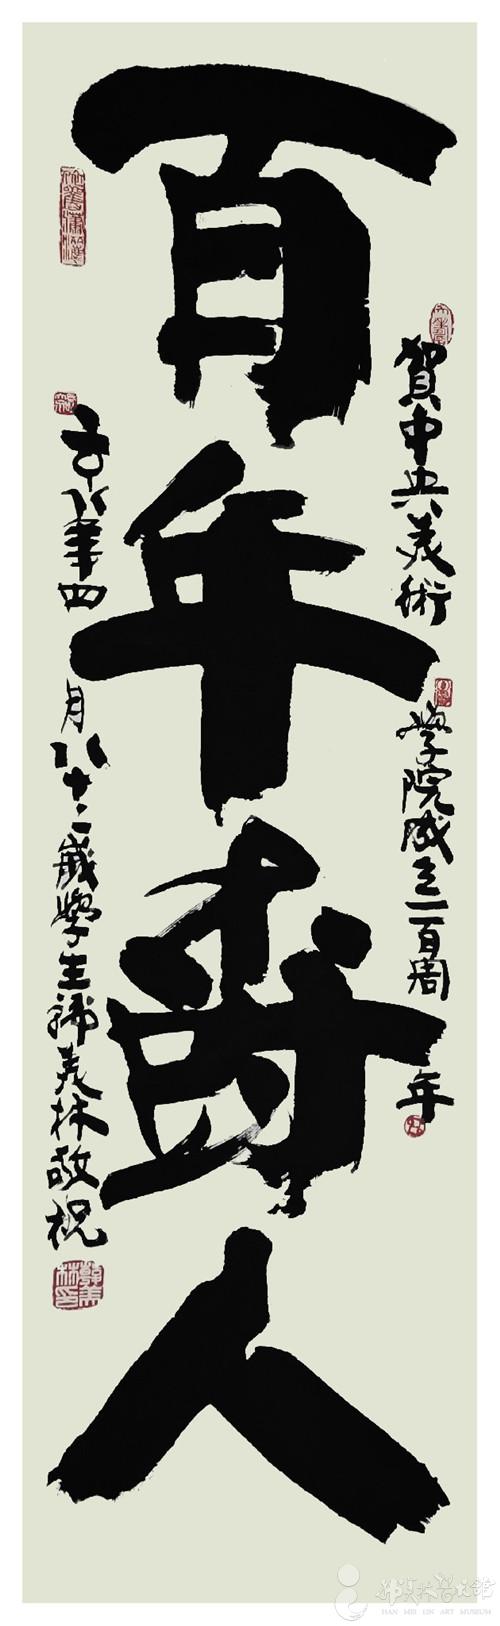 百年樹人
賀中央美術學院成立一百周年
二〇一八年四月八十二歲學生韓美林敬祝
韓美林印
韩美林艺术馆
HAN MEI LIN ART MUSEUM